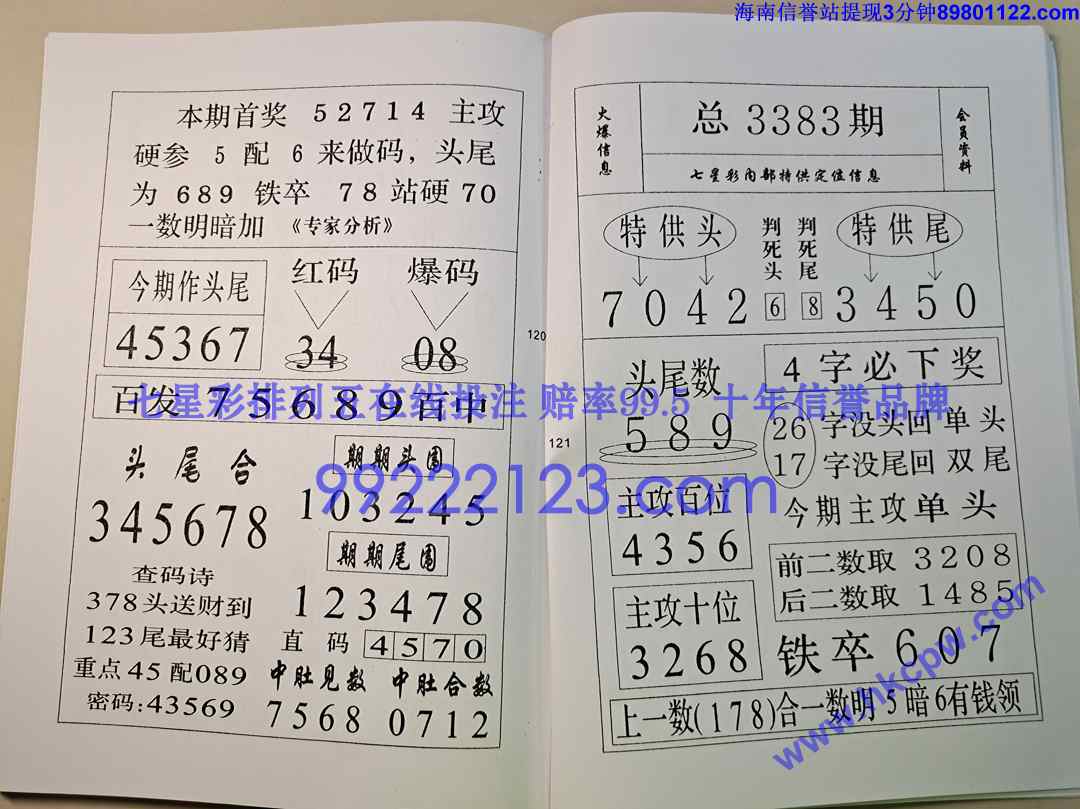 海南信誉站提现3分钟89801122.com
本期首奖 52714 主攻
硬参 5 配 6 来做码，头尾
为 689 铁卒 78 站硬 70
一数明暗加 《专家分析》
今期作头尾
45367
红码
34
爆码
08
百发 75689 百中
头尾合
345678
期期头围
103245
期期尾围
123478
查码诗
378头送财到
123尾最好猜
重点45配089
密码:43569
直码 4570
中肚见数
7568
中肚合数
0712
120
121
火爆信息
总3383期
七星彩内部特供定值信息
会员资料
特供头
7042
判死头
6
判死尾
8
特供尾
3450
头尾数
589
4字必下奖
26字没头回单头
17字没尾回双尾
今期主攻单头
主攻百位
4356
前二数取 3208
后二数取 1485
主攻十位
3268
铁卒607
上一数(178)合一数明5暗6有钱领
七星彩排列五在线投注 赔率99.5 十年信誉品牌
99222123.com
www.hkcpw.com